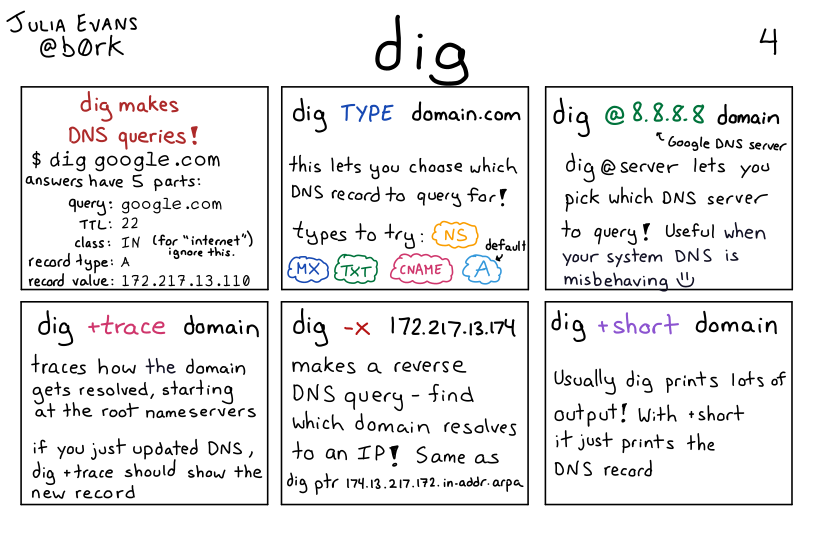 JULIA EVANS
@b0rk
dig
4
dig makes
DNS queries!
$ dig google.com
answers have 5 parts:
query: google.com
TTL: 22
class: IN (for "internet")
ignore this.
record type: A
record value: 172.217.13.110
dig TYPE domain.com
this lets you choose which
DNS record to query for!
types to try: NS
default
MX TXT CNAME A
dig @8.8.8.8 domain
Google DNS server
dig @server lets you
pick which DNS server
to query! Useful when
your system DNS is
misbehaving
dig +trace domain
traces how the domain
gets resolved, starting
at the root nameservers
if you just updated DNS,
dig +trace should show the
new record
dig -x 172.217.13.174
makes a reverse
DNS query - find
which domain resolves
to an IP! Same as
dig ptr 174.13.217.172.in-addr.arpa
dig +short domain
Usually dig prints lots of
output! With +short
it just prints the
DNS record